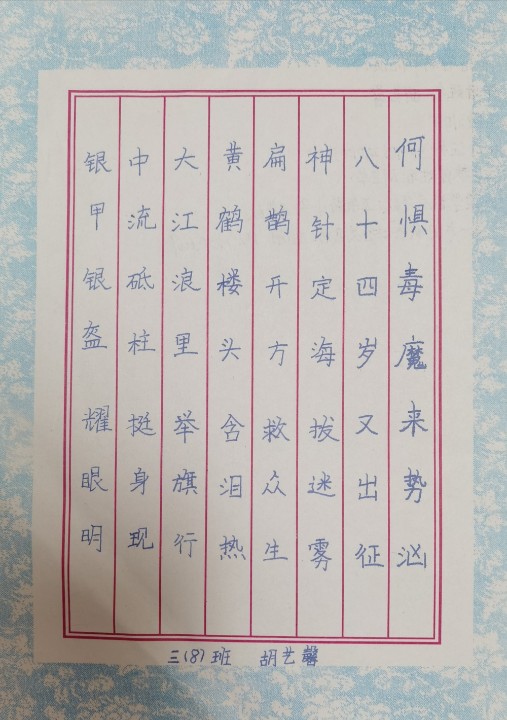 何惧毒魔来势汹
八十四岁又出征
神针定海拔迷雾
扁鹊开方救众生
黄鹤楼头含泪热
大江浪里举旗行
中流砥柱挺身现
银甲银盔耀眼明
三(8)班 胡艺馨